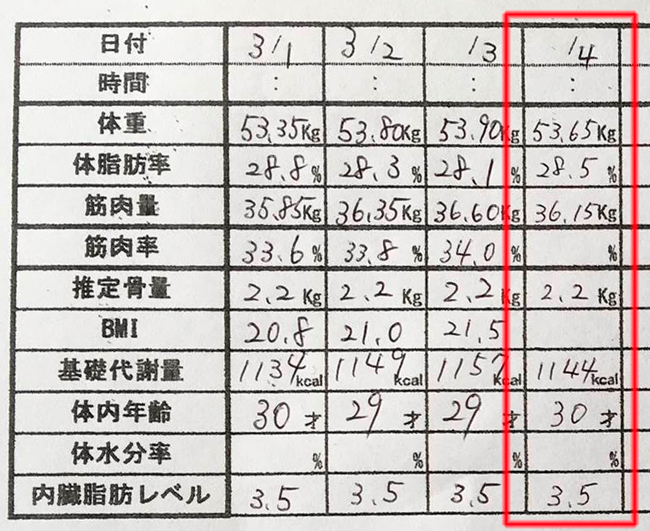 日付 3/1 3/2 /3 /4
時間 : : : :
体重 53.35Kg 53.80Kg 53.90Kg 53.65Kg
体脂肪率 28.8% 28.3% 28.1% 28.5%
筋肉量 35.85Kg 36.35Kg 36.60Kg 36.15Kg
筋肉率 33.6% 33.8% 34.0% %
推定骨量 2.2Kg 2.2Kg 2.2Kg 2.2Kg
BMI 20.8 21.0 21.5
基礎代謝量 1134kcal 1149kcal 1157kcal 1144kcal
体内年齢 30才 29才 29才 30才
体水分率 % % % %
内臓脂肪レベル 3.5 3.5 3.5 3.5